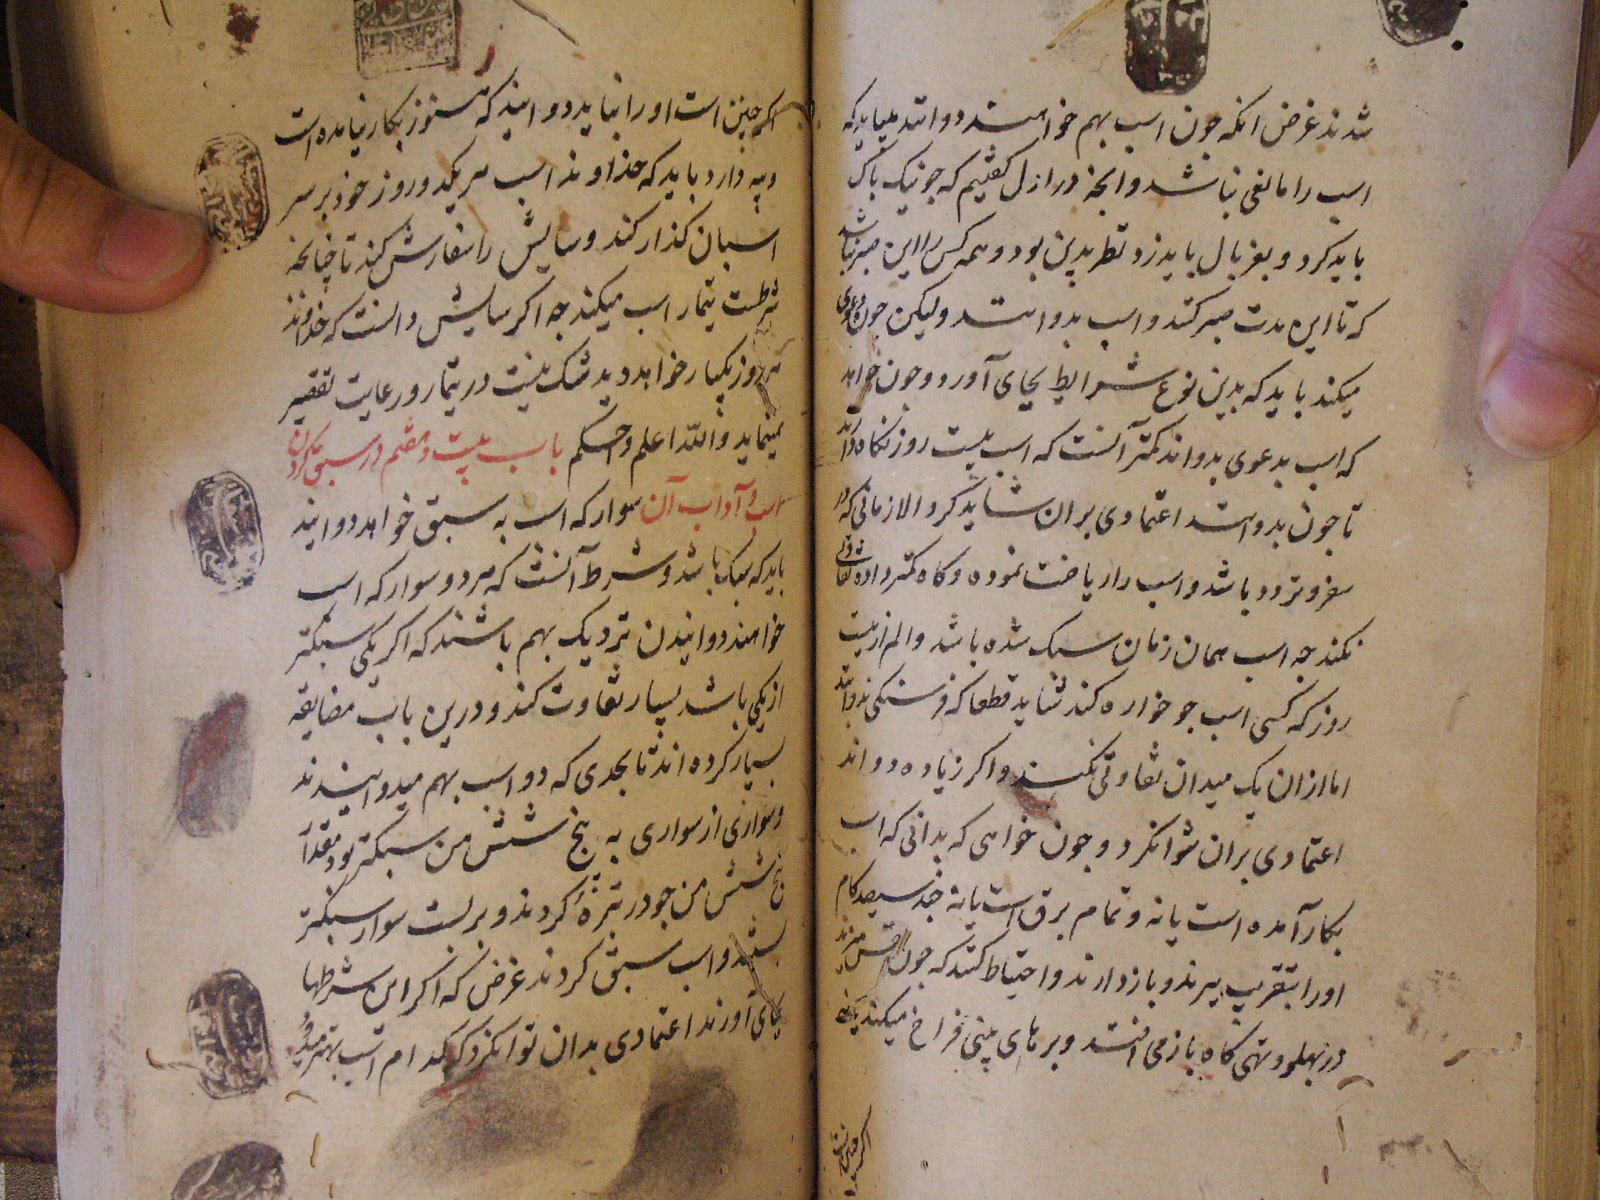 شدند غرض انکه چون اسب بهم خواهند دوانند میباید که
اسب را مالغی نباشد وانچه در ازل کفتیم که جو نیک پاک
باید کرد و بغربال باید زد تطریدین بود و همه کس را این صبر نباشد
که تا این مدت صبر کند و اسب بدوانند ولیکن چون دعوی
میکند باید که بدین نوع شرایط بجای آورد و چون خواهد
که اسب بدعوی بدواند کمتر آنست که اسب بیست روز نکاه دارند
تا چون بدوانند اعتمادی بران شاید کرد والا زمانی که در
سفر و تردد باشد و اسب را ریاضت نموده و کاه کمتر داده تفاوتی
نکند چه اسب همان زمان سبک شده باشد و الم از بیست
روز که کسی اسب جو خواره کند نشاید قطعا که فرسنکی بدوانند
اما ازان یک میدان تفاوتی نکند و اکر زیاده دواند
اعتمادی بران نتوانکرد و چون خواهی که بدانی که اسب
بکار آمده است یا نه و تمام برق است یا نه چند سیصد کام
او را بتقریب ببرند و باز دارند و احتیاط کنند که چون نفس میزند
در پهلو و تهی کاه باز می افتد و برهای بینی فراخ میکند یا نه
اکر چنین است
اکر چنین است او را نباید دوانید که هنوز بکار نیامده است
و پیه دارد باید که خداوند اسب هر یکدو روز خود بر سر
اسبان کذار کند و سایس را سفارش کند تا چنانچه
شرطست تیمار اسب میکند چه اکر سایس دانست که خداوند
هر روز یکبار خواهد دید شک نیست در تیمار و رعایت تقصیر
نمینماید والله اعلم واحکم باب بیست و هفتم در سبق کردن
اسب و آداب آن سوار که اسب به سبق خواهد دوانید
باید که سبک باشد و شرط آنست که هر دو سوار که اسب
خواهند دوانیدن نزدیک بهم باشند که اکر یکی سبکتر
از یکی باشد بسیار تفاوت کند و درین باب مضایقه
بسیار کرده اند تا بحدی که دو اسب بهم میدوانیدند
و سواری از سواری به پنج شش من سبکتر بود مقدار
پنج شش من جو در توبره کردند و بر پشت سوار سبکتر
بستند و اسب سبق کردند غرض که اکر این شرطها
بجای آورند اعتمادی بدان توانکرد که کدام اسب بهتر میدود